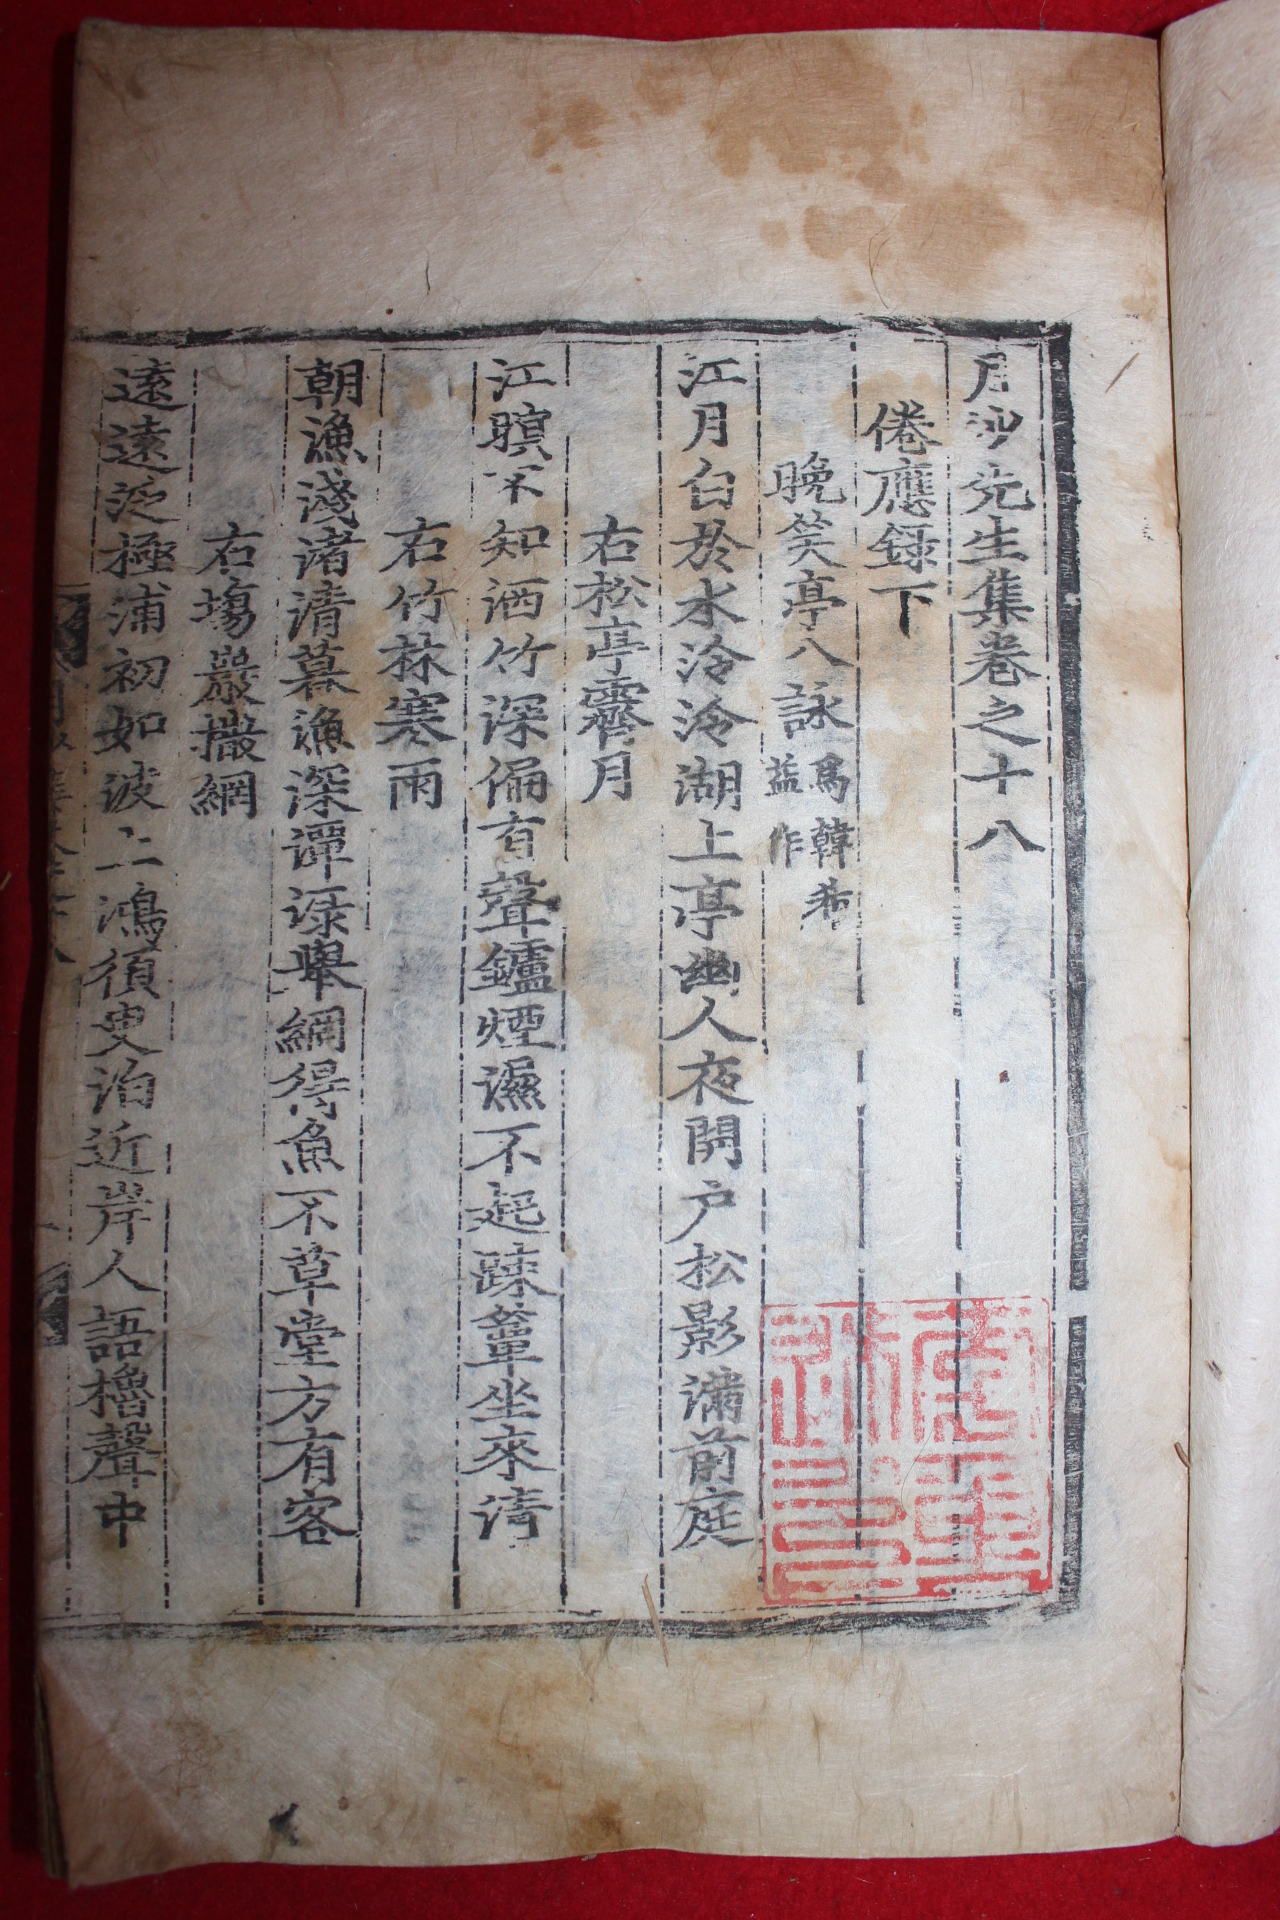 月沙先生集卷之十八
倦應錄下
晩笑亭八詠 爲韓希
益作
江月白於水泠泠湖上亭幽人夜開戶松影滿前庭
右松亭霽月
江暝不知洒竹深偏有聲鑪煙濕不起踈簟坐來淸
右竹林寒雨
朝漁淺渚淸暮漁深潭渌擧網得魚不草堂方有客
右塲巖撒網
遠遠泛極浦初如波上鴻須臾泊近岸人語櫓聲中